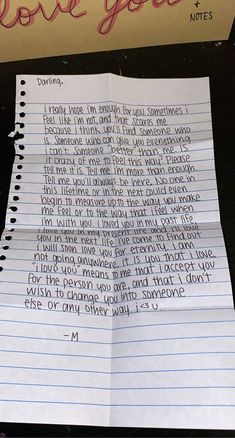 love you
+
NOTES
Darling,
I really hope I'm enough for you. Sometimes i
feel like i'm not, and that scares me
because i think you'll find someone who
is. Someone who can give you everything
i can't. Someone "better" than me. Is
it crazy of me to feel this way? Please
tell me it is. Tell me i'm more than enough.
Tell me you'll always be here. No one in
this lifetime or in the next could even
begin to measure up to the way you make
me feel or to the way that i feel when
i'm with you. I loved you in my past life,
I love you in my present life and i'll love
you in the next life. I've come to find out
i will soon love you for eternity. I am
not going anywhere. It is you that i love.
"i love you" means to me that i accept you
for the person you are, and that i don't
wish to change you into someone
else or any other way. i <3 u.
-M